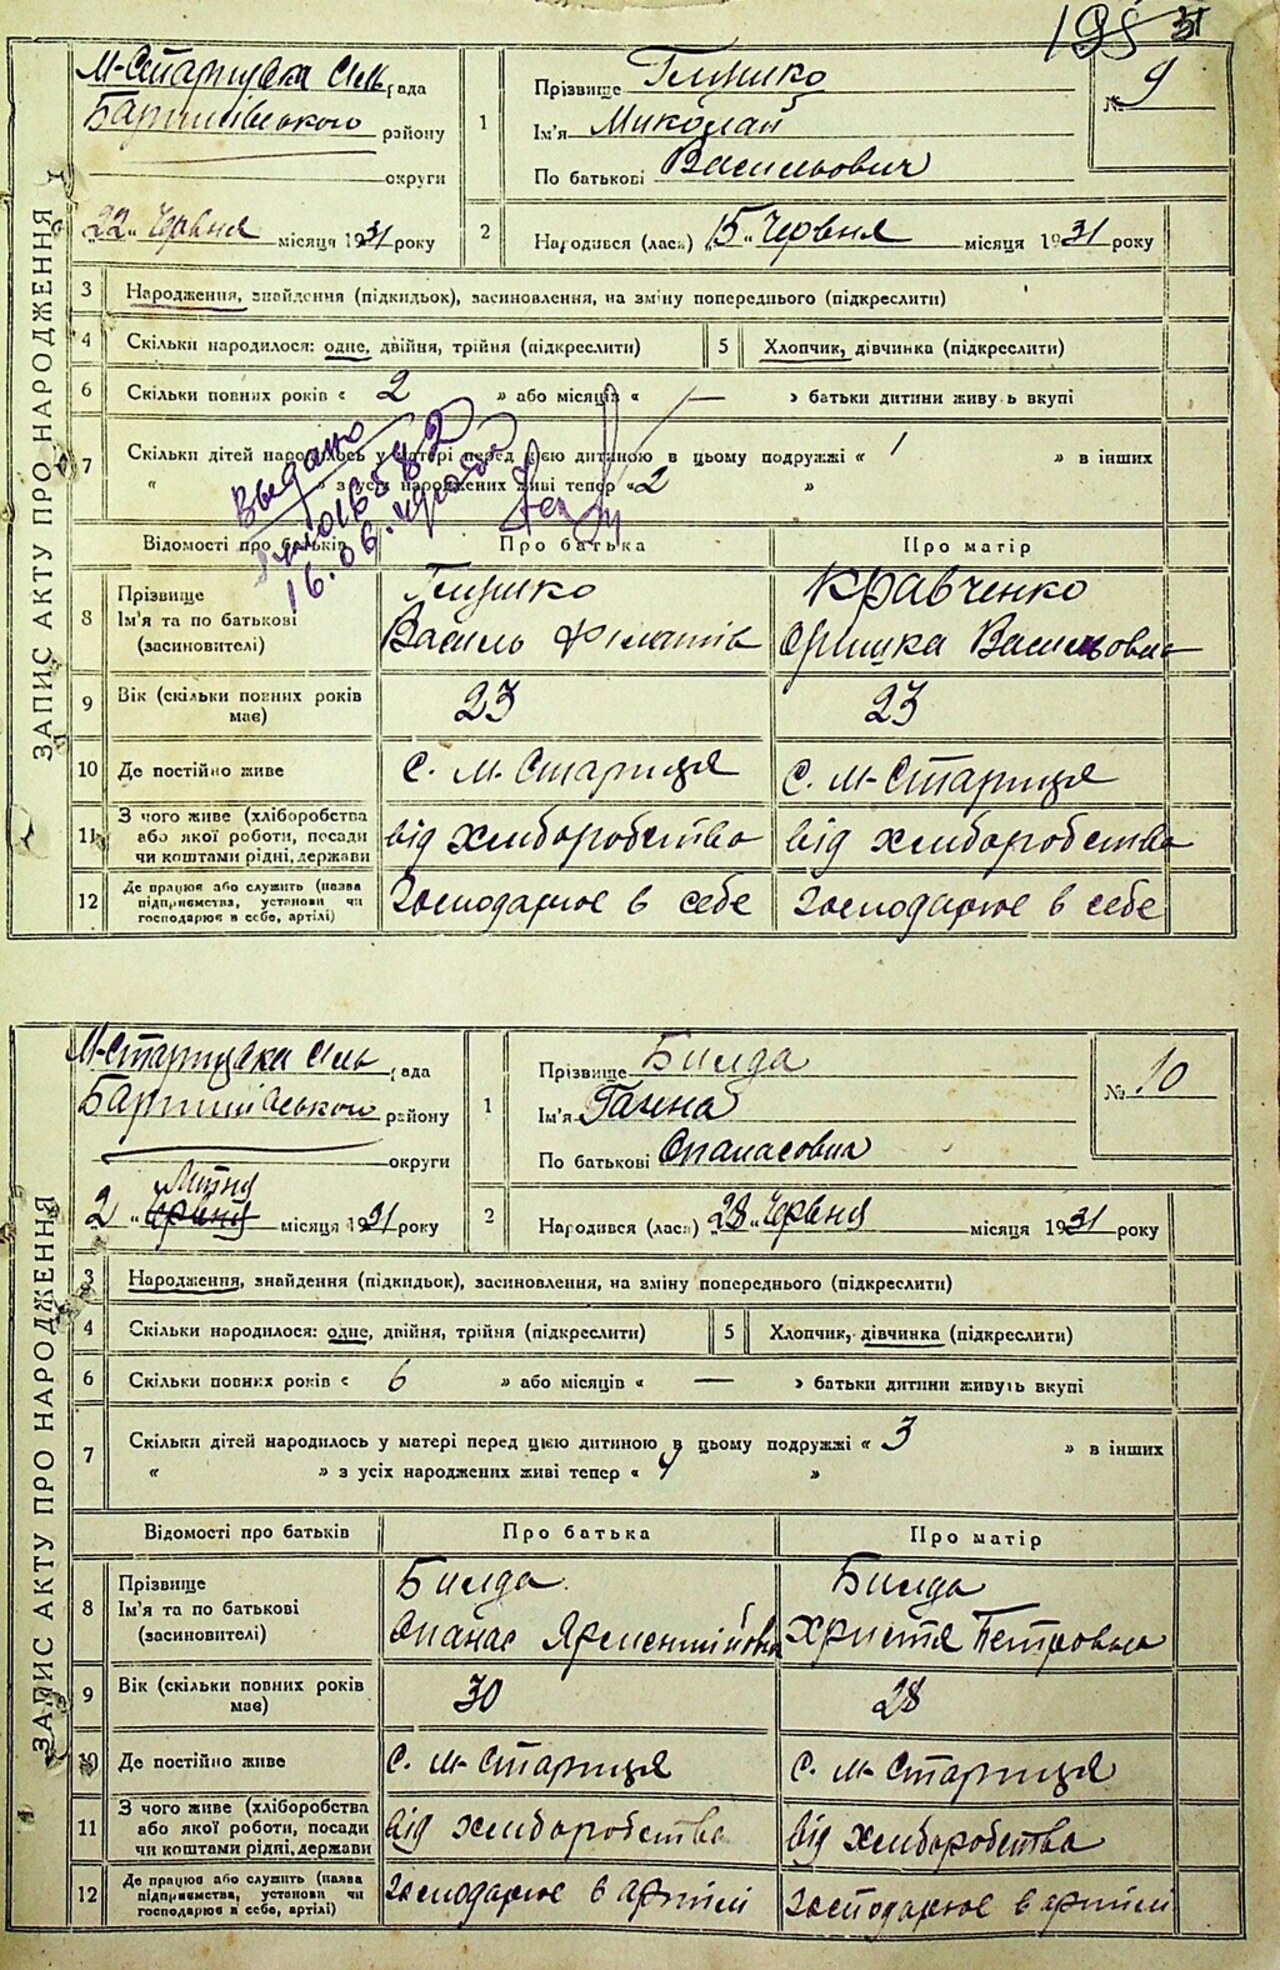 195 31
М-Старицька сіль рада
Баришівського району
округи
22 Червня місяця 1931 року
1
Прізвище Глушко
Ім'я Миколай
По батькові Васильович
№ 9
2
Народився (лась) 15 Червня місяця 1931 року
ЗАПИС АКТУ ПРО НАРОДЖЕННЯ
3 Народження, знайдення (підкидьок), засиновлення, на зміну попереднього (підкреслити)
4 Скільки народилося: одне, двійня, трійня (підкреслити) 5 Хлопчик, дівчинка (підкреслити)
6 Скільки повних років « 2 » або місяців « — » батьки дитини живуть вкупі
7 Скільки дітей народилось у матері перед цією дитиною в цьому подружжі « 1 » в інших
« » з усіх народжених живі тепер « 2 »
Выдано
16.06.
Відомості про батьків Про батька Про матір
8 Прізвище Глушко Кравченко
Ім'я та по батькові Василь Оришка Васильовна
(засиновителі)
9 Вік (скільки повних років має) 23 23
10 Де постійно живе с. М. Стариця с. М-Стариця
11 З чого живе (хліборобства
або якої роботи, посади від хліборобства від хліборобства
чи коштами рідні, держави
12 Де працює або служить (назва
підприємства, установи чи господарює в себе господарює в себе
господарює в себе, артілі)
М-Старицька сіль рада
Баришівського району
округи
Липня
2 червня місяця 1931 року
1
Прізвище Билда
Ім'я Ганна
По батькові Опанасовна
№ 10
2
Народився (лась) 28 Червня місяця 1931 року
ЗАПИС АКТУ ПРО НАРОДЖЕННЯ
3 Народження, знайдення (підкидьок), засиновлення, на зміну попереднього (підкреслити)
4 Скільки народилося: одне, двійня, трійня (підкреслити) 5 Хлопчик, дівчинка (підкреслити)
6 Скільки повних років « 6 » або місяців « — » батьки дитини живуть вкупі
7 Скільки дітей народилось у матері перед цією дитиною в цьому подружжі « 3 » в інших
« » з усіх народжених живі тепер « »
Відомості про батьків Про батька Про матір
8 Прізвище Билда Билда
Ім'я та по батькові Опанас Христя Петровна
(засиновителі)
9 Вік (скільки повних років має) 30 28
10 Де постійно живе с. М-Стариця с. М-Стариця
11 З чого живе (хліборобства
або якої роботи, посади від хліборобства від хліборобства
чи коштами рідні, держави
12 Де працює або служить (назва
підприємства, установи чи господарює в артілі господарює в артілі
господарює в себе, артілі)